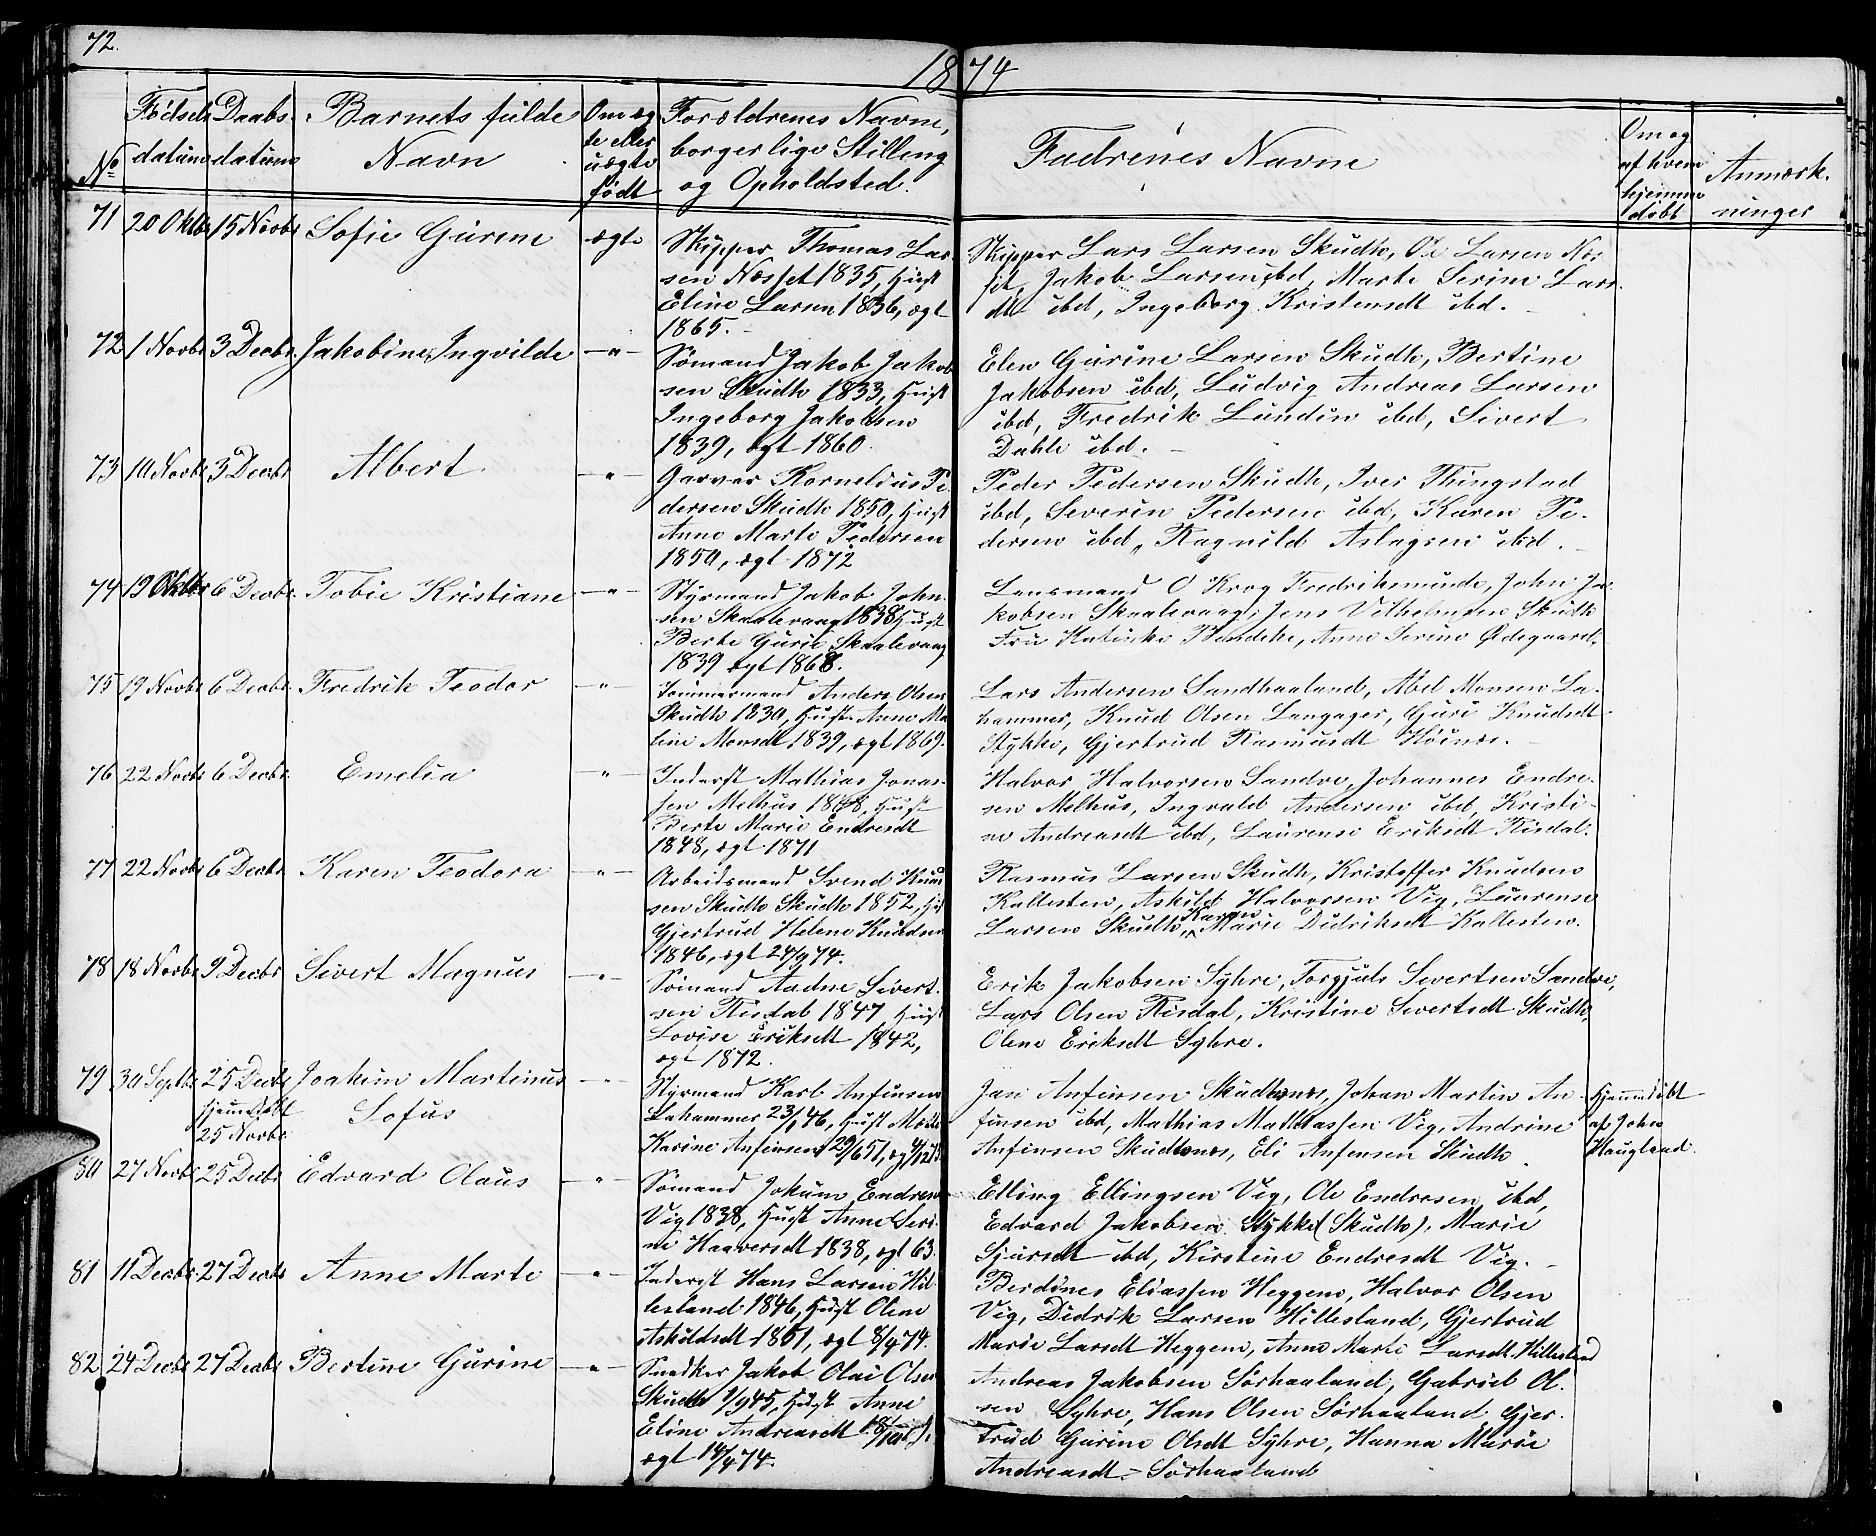 72.
1874
No
Fødsels
datum
Daabs
datum
Barnets fulde
Navn
Om æg
te eller
uægte
født
Forældrenes Navne,
borgerlige Stilling
og Opholdsted.
Fadrenes Navne
Om og
af hvem
hjemme
døbt
Anmærk.
ninger
71 20 Oktbr 15 Novbr Sofie Gurine ægte
Skipper Thomas Lar
sen Næsset 1835, Hust
Eline Larsen 1836, ægt
1865.
Skipper Lars Larsen Skudh, Ole Larsen Næs
set, Jakob Larsen ibd, Marte Serine Lars
dtr ibd, Ingeborg Kristensdt ibd.
72 1 Novbr 3 Decbr Jakobine Ingvilde —"—
Sømand Jakob Jakob
sen Skudh 1833, Hust
Ingeborg Jakobsen
1839, ægt 1860.
Elen Gurine Larsen Skudh, Bertine
Jakobsen ibd, Ludvig Andreas Larsen
ibd, Fredrik Lundin ibd, Sivert
Dahle ibd.
73 10 Novbr 3 Decbr Albert —"—
Garver Kornelius Pe
dersen Skudh 1850, Hust
Anne Marte Pedersen
1850, ægt 1872
Peder Pedersen Skudh, Iver Thingstad
ibd, Severin Pedersen ibd, Karen Pe.
dersen ibd, Ragnild Aslagsen ibd.
74 19 Oktbr 6 Decbr Tobie Kristiane —"—
Styrmand Jakob John
sen Skaalevaag 1838 Hust
Berte Gurie Skaalevaag
1839 ægt 1868.
Lensmand O Krog Fredriksminde, John Ja
kobsen Skaalevaag, Jens Vilhelmsen Skudh
Fru Katinka Bendeke, Anne Serine Ødegaard.
75 19 Novbr 6 Decbr Fredrik Teodor —"—
Tømmermand Anders Olsen
Skudh 1830, Hust Anne Ma
line Monsdt 1839, ægt 1869.
Lars Andersen Sandhaaland, Abel Monsen La.
hammer, Knud Olsen Langager, Guri Knudsdt
Stykke, Gjertrud Rasmusdt Høines.
76 22 Novbr 6 Decbr Emelia —"—
Inderst Mathias Jonas
sen Melhus 1848, Hust
Berte Marie Endresdt
1848, ægt 1871
Halvor Halvorsen Sandve, Johannes Endre.
sen Melhus, Ingvald Andersen ibd, Kristi
ne Andreasdt ibd, Laurense Eriksdt Risdal.
77 22 Novbr 6 Decbr Karen Teodora —"—
Arbeidsmand Svend Knud
sen Skudh Skudh 1852, Hust
Gjertrud Helene Knudsen
1846, ægt 24/9 74.
Rasmus Larsen Skudh, Kristoffer Knudsen
Kallesten, Askild Halvorsen Vig, Laurense
Larsen Skudh, Karen Marie Didriksdt Kallesten.
78 18 Novbr 9 Decbr Sivert Magnus —"—
Sømand Aadne Sivert
sen Risdal 1847 Hust
Lovise Eriksdt 1842,
ægt 1872.
Erik Jakobsen Syhre, Torgjuls Sivertsen Sandve,
Lars Olsen Risdal, Kristine Sivertsdt Skudh,
Olene Eriksdt Syhre.
79 30 Septbr 25 Decbr Joakim Martinus —"—
hjemdøbt
25 Novbr
Sofus
Styrmand Karl Anfinsen
Lahammer 23/1 46, Hust
Karine Anfinsen 29/6 51,
Jan Anfinsen Skudesnes, Johan Martin An
finsen ibd, Mathias Mathiassen Vig, Andrine
Anfinsen Skudesnes, Eli Anfinsen Skudh
Hjemmedøbt
af John
Haugland.
80 27 Novbr 25 Decbr Edvard Olaus —"—
Sømand Jokum Endresen
Vig 1838, Hust Anne Seri
ne Haaversdt 1838, ægt 63.
Elling Ellingsen Vig, Ole Endresen ibd,
Edvard Jakobsen Stykke (Skudh), Marie
Sjursdt ibd, Kirstine Endresdt Vig.
81 11 Decbr 27 Decbr Anne Marte —"—
Inderst Hans Larsen Hil
lesland 1846, Hust Oline
Askildsdt 1851, ægt 8/4 74.
Berdines Eliassen Heggem, Halvor Olsen
Vig, Didrik Larsen Hillesland, Gjertrud
Marie Larsdt Heggem, Anne Marte Larsdt Hillesland
82 24 Decbr 27 Decbr Bertine Gurine —"—
Snedker Jakob Olai Olsen
Skudh 1/9 45, Hust Anne
Eline Andreasdt
ægt 14/4 74.
Andreas Jakobsen Sørhaaland, Gabriel Ol.
sen Syhre, Hans Olsen Sørhaaland. Gjer.
trud Gurine Olsdt Syhre, Hanna Marie
Andreasdt Sørhaaland